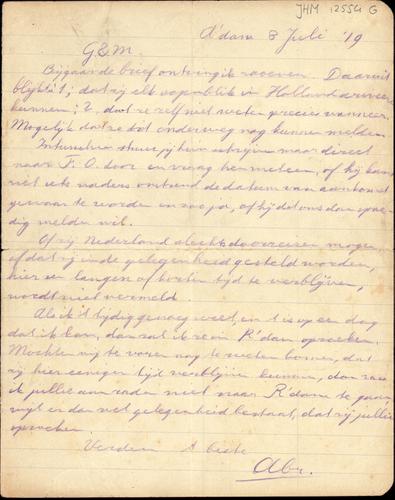 JHM 12554 G
A'dam 8 Juli '19
G & M.
Bijgaande brief ontving ik zooeven. Daaruit
blijkt 1; dat zij elk oogenblik in Holland
kunnen; 2, dat ze zelf niet weten precies wanneer.
Mogelijk dat ze dat onderweg nog kunnen melden.
Intusschen stuur jij hun schrijven maar direct
naar F. O. door en vraag hen meteen, of hij kan
niet iets naders omtrent de datum van aankomst
gewaar te worden en zoo ja, of hij dat ons dan spoe-
dig melden wil.
Of zij Nederland slechts doorreizen mogen
of dat zij in de gelegenheid gesteld worden,
hier een langen of korten tijd te verblijven,
wordt niet vermeld.
Als ik 't tijdig genoeg weet, en 't is op een dag
dat ik kan, dan zal ik ze in R'dam opzoeken.
Mochten wij te voren nog te weten komen, dat
zij hier eenigen tijd verblijven kunnen, dan zou
ik jullie aanraden niet naar R'dam te gaan,
wijl er dan wel gelegenheid bestaat, dat zij jullie
opzoeken.
Verder 't beste